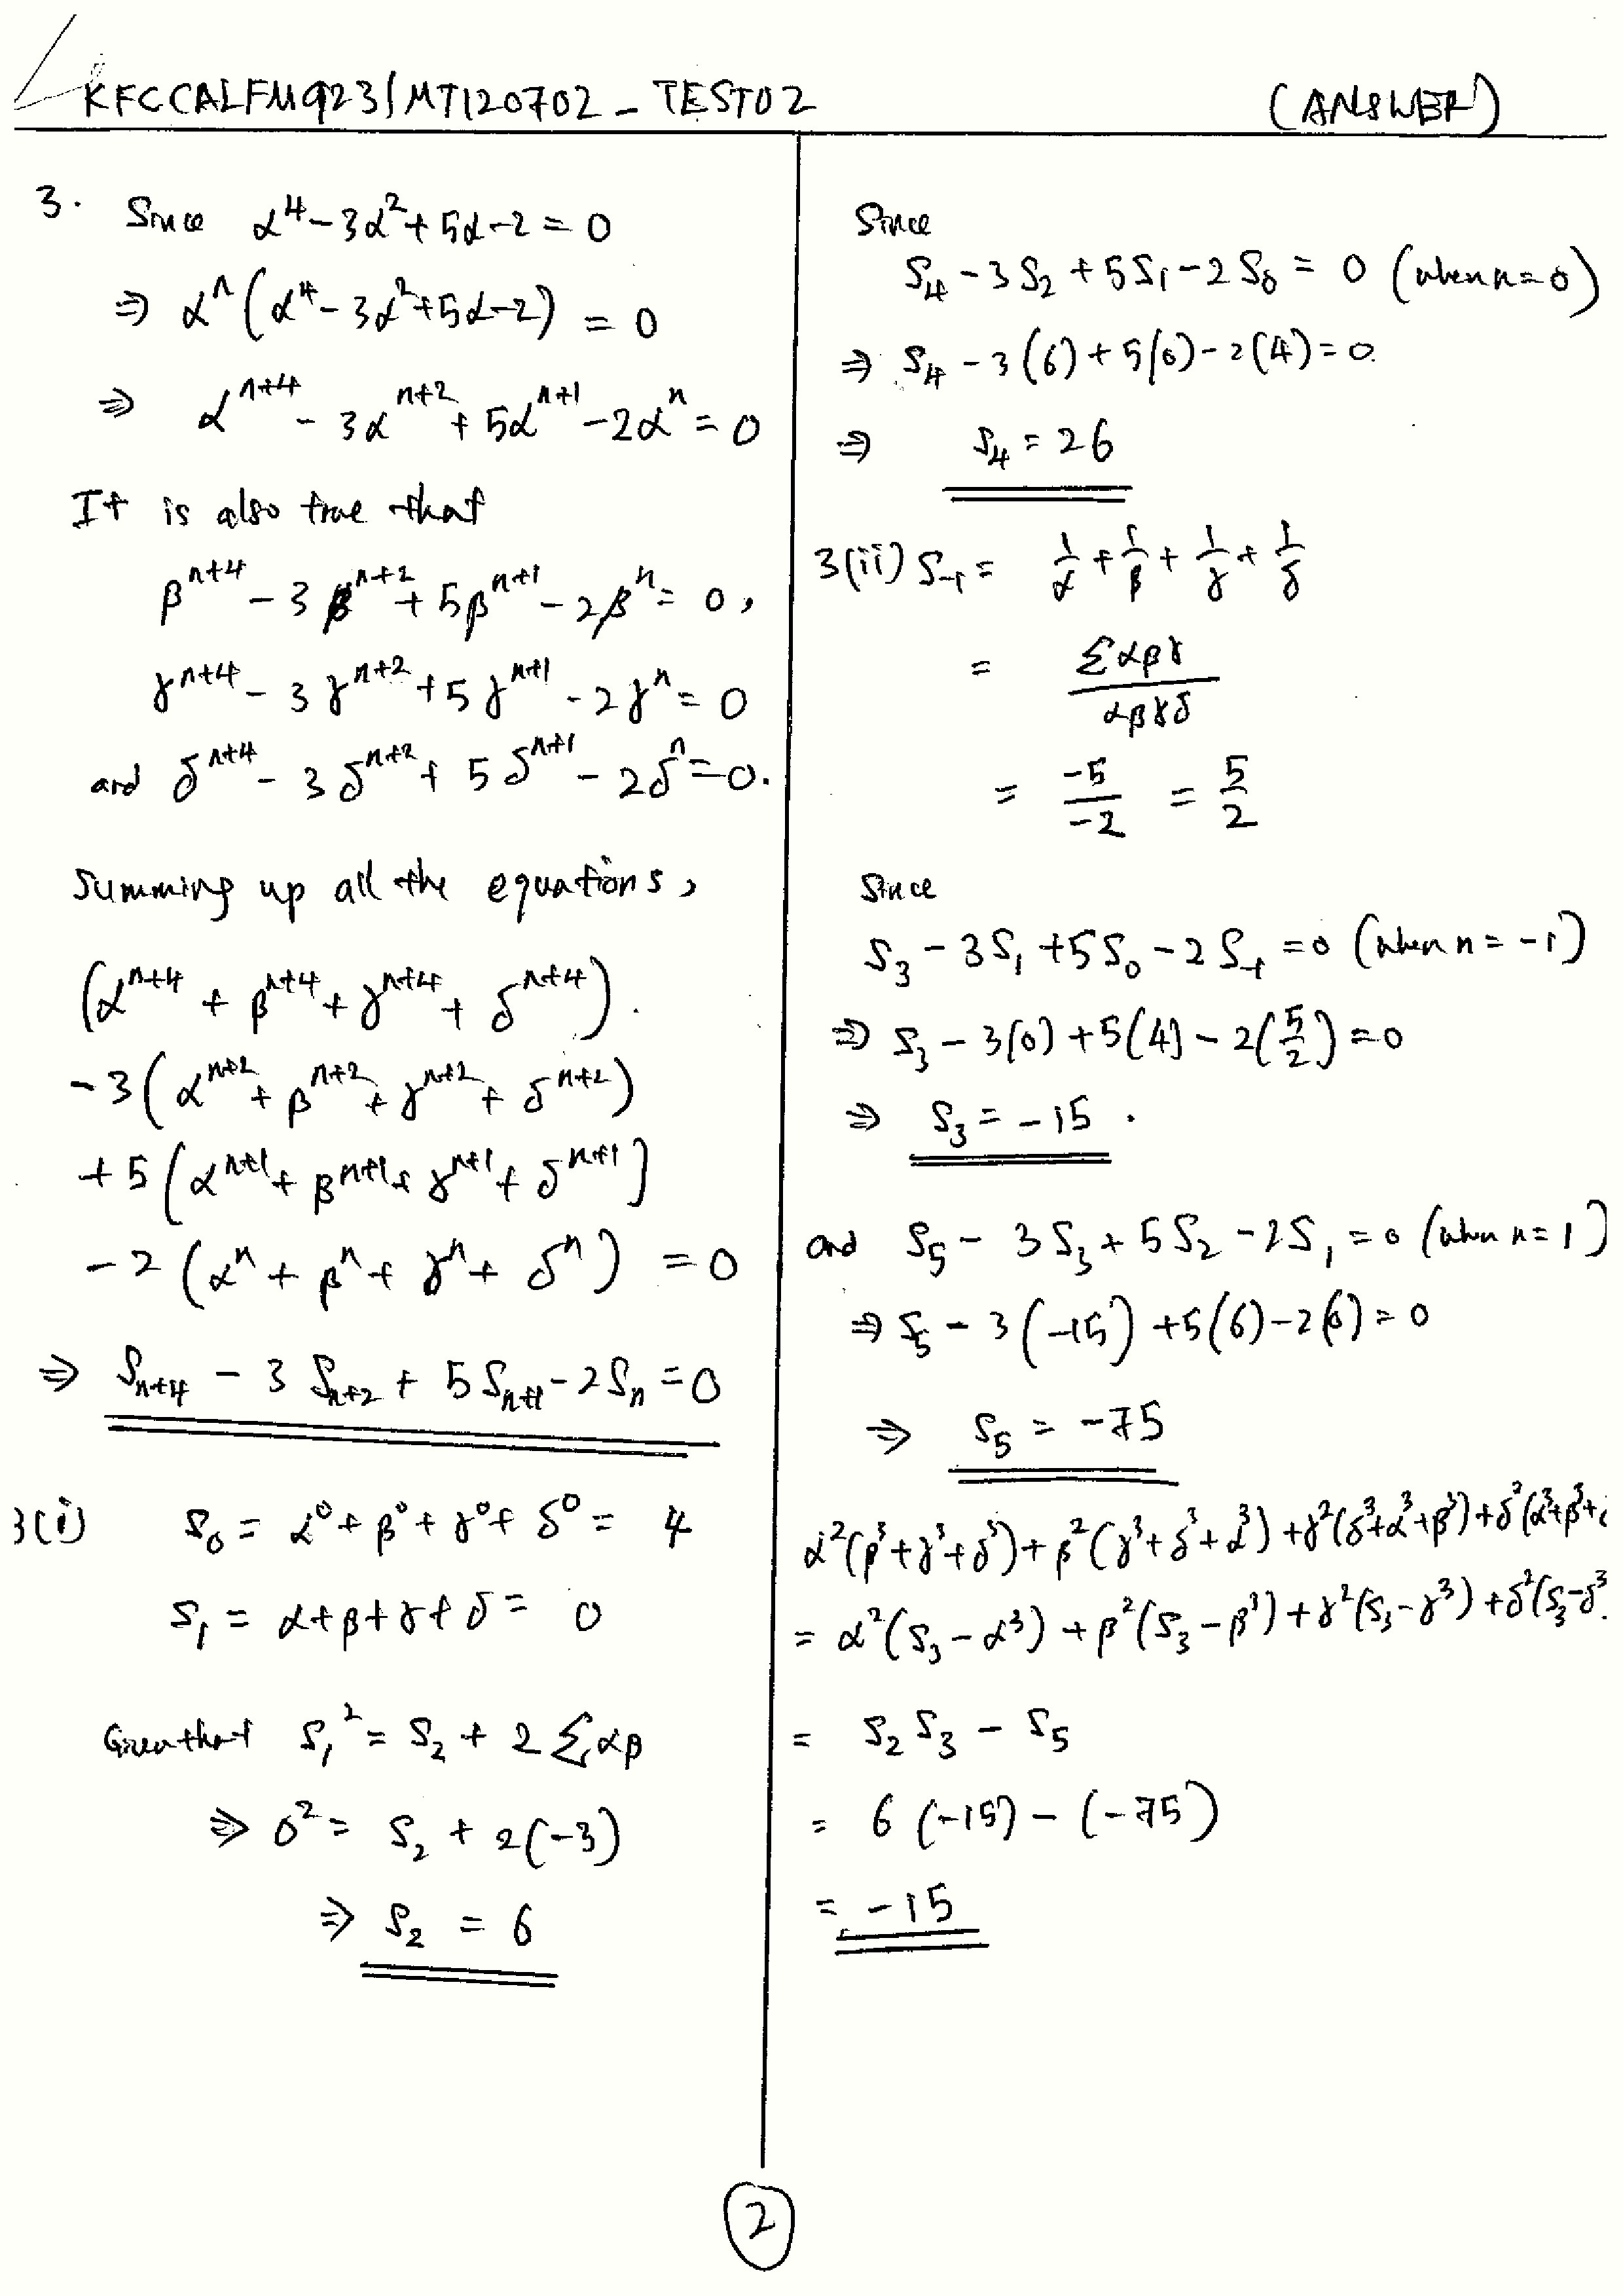 KFCCALFM923/MT120702_TEST02 (ANSWER)
3. Since α⁴-3α²+5α-2=0
⇒ αⁿ(α⁴-3α²+5α-2) = 0
⇒ αⁿ⁺⁴ - 3αⁿ⁺² + 5αⁿ⁺¹ - 2αⁿ = 0
It is also true that
βⁿ⁺⁴ - 3βⁿ⁺² + 5βⁿ⁺¹ - 2βⁿ = 0,
γⁿ⁺⁴ - 3γⁿ⁺² + 5γⁿ⁺¹ - 2γⁿ = 0
and δⁿ⁺⁴ - 3δⁿ⁺² + 5δⁿ⁺¹ - 2δⁿ = 0.
Summing up all the equations,
(αⁿ⁺⁴ + βⁿ⁺⁴ + γⁿ⁺⁴ + δⁿ⁺⁴)
-3(αⁿ⁺² + βⁿ⁺² + γⁿ⁺² + δⁿ⁺²)
+5(αⁿ⁺¹ + βⁿ⁺¹ + γⁿ⁺¹ + δⁿ⁺¹)
-2(αⁿ + βⁿ + γⁿ + δⁿ) = 0
⇒ Sₙ₊₄ - 3Sₙ₊₂ + 5Sₙ₊₁ - 2Sₙ = 0
3(i) S₀ = α⁰ + β⁰ + γ⁰ + δ⁰ = 4
S₁ = α+β+γ+δ = 0
Given that S₁² = S₂ + 2Σαβ
⇒ 0² = S₂ + 2(-3)
⇒ S₂ = 6
Since
S₄ - 3S₂ + 5S₁ - 2S₀ = 0 (when n=0)
⇒ S₄ - 3(6) + 5(0) - 2(4) = 0.
⇒ S₄ = 26
3(ii) S₋₁ = 1/α + 1/β + 1/γ + 1/δ
= Σαβγ / αβγδ
= -5/-2 = 5/2
Since
S₃ - 3S₁ + 5S₀ - 2S₋₁ = 0 (when n = -1)
⇒ S₃ - 3(0) + 5(4) - 2(5/2) = 0
⇒ S₃ = -15.
and S₅ - 3S₃ + 5S₂ - 2S₁ = 0 (when n=1)
⇒ S₅ - 3(-15) + 5(6) - 2(0) = 0
⇒ S₅ = -75
α²(β³+γ³+δ³)+β²(γ³+δ³+α³)+γ²(δ³+α³+β³)+δ²(α³+β³+
= α²(S₃-α³)+β²(S₃-β³)+γ²(S₃-γ³)+δ²(S₃-δ³
= S₂S₃ - S₅
= 6(-15) - (-75)
= -15
2